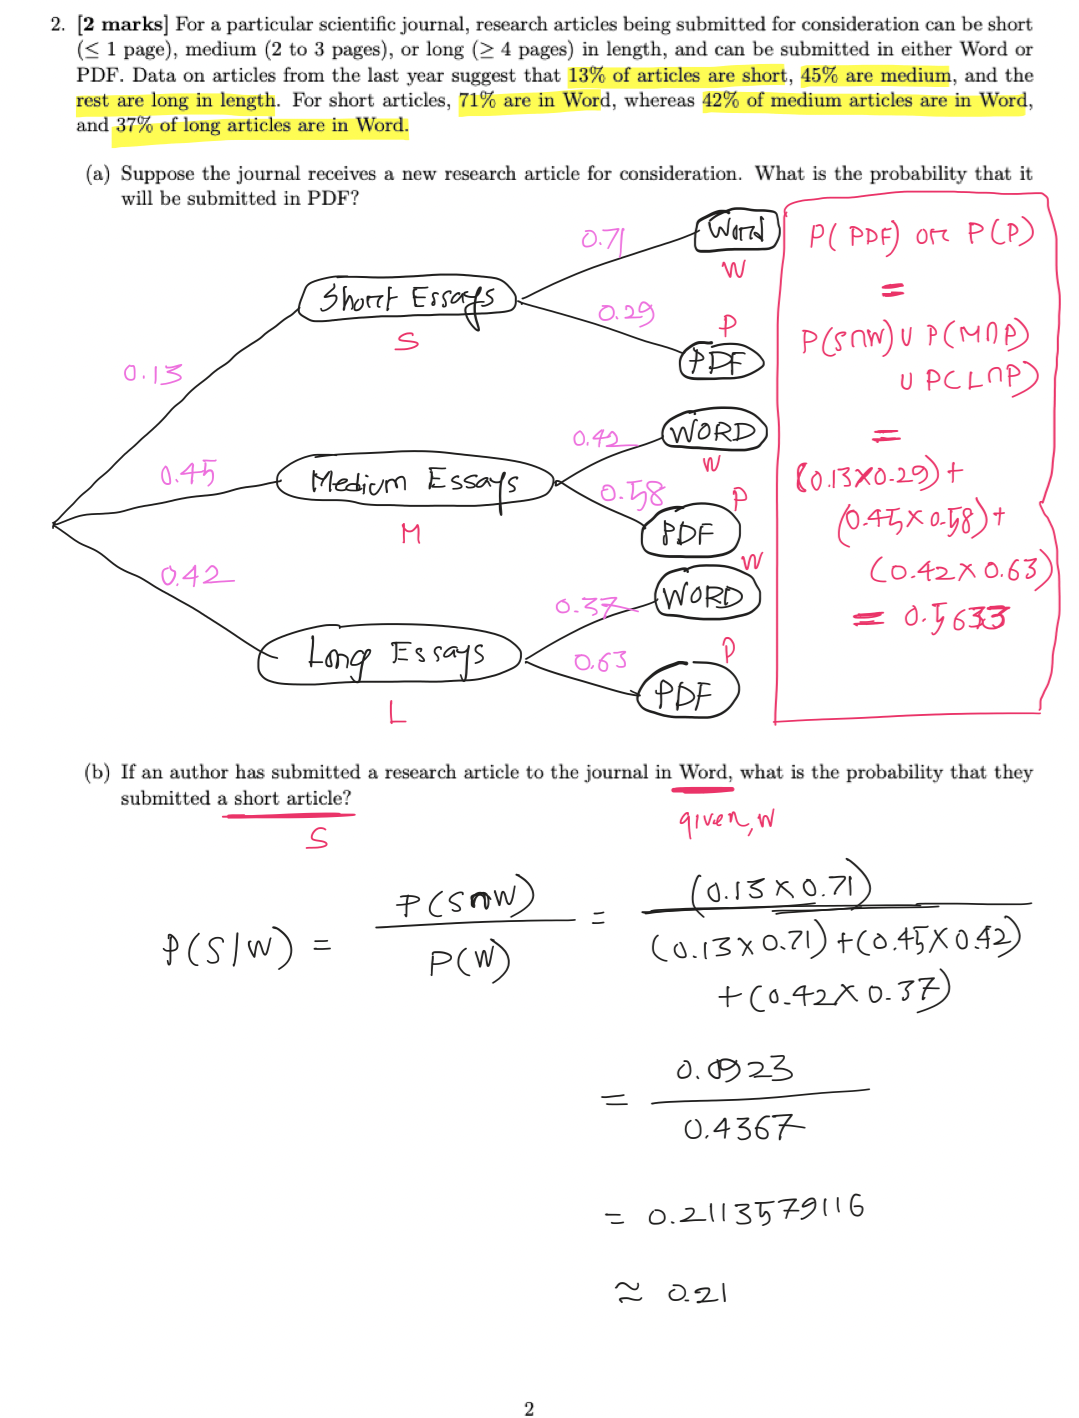 2. [2 marks] For a particular scientific journal, research articles being submitted for consideration can be short
(≤ 1 page), medium (2 to 3 pages), or long (≥ 4 pages) in length, and can be submitted in either Word or
PDF. Data on articles from the last year suggest that 13% of articles are short, 45% are medium, and the
rest are long in length. For short articles, 71% are in Word, whereas 42% of medium articles are in Word,
and 37% of long articles are in Word.
(a) Suppose the journal receives a new research article for consideration. What is the probability that it
will be submitted in PDF?
0.13
0.45
0.42
Short Essays
S
Medium Essays
M
Long Essays
L
0.71
Word
W
0.29
P
PDF
0.42
WORD
W
0.58
P
PDF
0.37
W
WORD
0.63
P
PDF
P( PDF) or P(P)
=
P(S∩W) ∪ P(M∩P)
∪ P(L∩P)
=
(0.13×0.29)+
(0.45×0.58)+
(0.42×0.63)
= 0.5633
(b) If an author has submitted a research article to the journal in Word, what is the probability that they
submitted a short article?
S
given, W
P(S|W) = P(S∩W) / P(W) = (0.13×0.71)
(0.13×0.71)+(0.45×0.42)
+(0.42×0.37)
= 0.0923
0.4367
= 0.2113579116
≈ 0.21
2